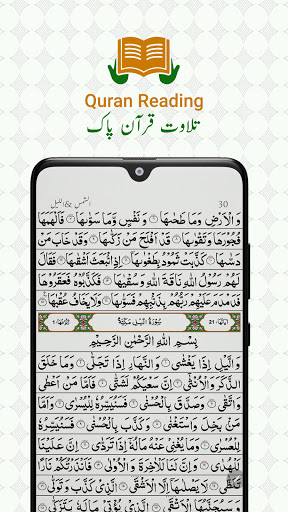 Quran Reading
تلاوت قرآن پاک
الشمس ٩١، الیل
30
وَالْاَرْضِ وَمَا طَحٰىهَا ۞ وَنَفْسٍ وَّمَا سَوّٰىهَا ۞ فَاَلْهَمَهَا
فُجُوْرَهَا وَتَقْوٰىهَا ۞ قَدْ اَفْلَحَ مَنْ زَكّٰىهَا ۞ وَقَدْ خَابَ مَنْ
دَسّٰىهَا ۞ كَذَّبَتْ ثَمُوْدُ بِطَغْوٰىهَا ۞ اِذِ انْۢبَعَثَ اَشْقٰىهَا ۞ فَقَالَ
لَهُمْ رَسُوْلُ اللّٰهِ نَاقَةَ اللّٰهِ وَسُقْيٰهَا ۞ فَكَذَّبُوْهُ فَعَقَرُوْهَا
فَدَمْدَمَ عَلَيْهِمْ رَبُّهُمْ بِذَنْۢبِهِمْ فَسَوّٰىهَا ۞ وَلَا يَخَافُ عُقْبٰهَا ۞
اٰیاتہا 21
سُوْرَةُ الَّيْلِ مَكِّيَّةٌ
رکوعہا 1
بِسْمِ اللّٰهِ الرَّحْمٰنِ الرَّحِيْمِ
وَالَّيْلِ اِذَا يَغْشٰى ۞ وَالنَّهَارِ اِذَا تَجَلّٰى ۞ وَمَا خَلَقَ
الذَّكَرَ وَالْاُنْثٰٓى ۞ اِنَّ سَعْيَكُمْ لَشَتّٰى ۞ فَاَمَّا مَنْ اَعْطٰى
وَاتَّقٰى ۞ وَصَدَّقَ بِالْحُسْنٰى ۞ فَسَنُيَسِّرُهٗ لِلْيُسْرٰى ۞ وَاَمَّا
مَنْۢ بَخِلَ وَاسْتَغْنٰى ۞ وَكَذَّبَ بِالْحُسْنٰى ۞ فَسَنُيَسِّرُهٗ
لِلْعُسْرٰى ۞ وَمَا يُغْنِيْ عَنْهُ مَالُهٗٓ اِذَا تَرَدّٰى ۞ اِنَّ عَلَيْنَا
لَلْهُدٰى ۞ وَاِنَّ لَنَا لَلْاٰخِرَةَ وَالْاُوْلٰى ۞ فَاَنْذَرْتُكُمْ نَارًا
تَلَظّٰى ۞ لَا يَصْلٰىهَآ اِلَّا الْاَشْقَى ۞ الَّذِيْ كَذَّبَ وَتَوَلّٰى ۞
وَسَيُجَنَّبُهَا الْاَتْقَى ۞ الَّذِيْ يُؤْتِيْ مَالَهٗ